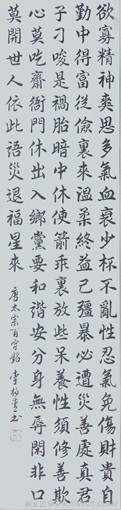 欲寡精神爽思多氣血衰少杯不亂性忍氣免傷財貴自
勤中得富從儉裏來溫柔終益己強暴必遭災善處真君
子刁唆是禍胎暗中休使箭乖裏放些呆養性須修善欺
心莫吃齋衙門休出入鄉黨要和諧安分身無辱閑非口
莫開世人依此語災退福星來
唐太宗百字銘